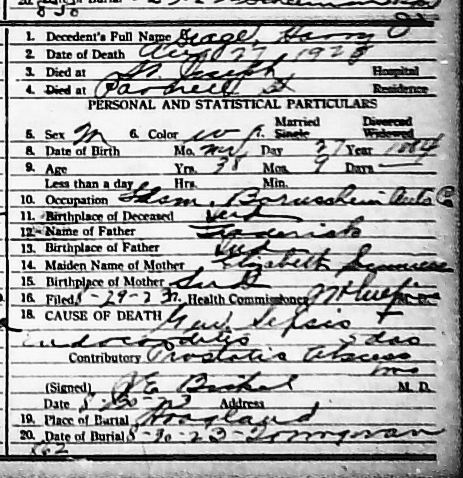 1. Decedent's Full Name Harry
2. Date of Death Aug 27 1923
3. Died at St. Joseph Hospital
4. Died at Parnell St Residence
PERSONAL AND STATISTICAL PARTICULARS
5. Sex M 6. Color W 7. Married Single Divorced Widowed
8. Date of Birth Mo. Nov Day 27 Year 1884
9. Age Yrs. 38 Mos. 9 Days —
Less than a day Hrs. Min.
10. Occupation Auto Co
11. Birthplace of Deceased Ind
12. Name of Father Frederick
13. Birthplace of Father Ind
14. Maiden Name of Mother Elisbeth
15. Birthplace of Mother Ind
16. Filed 8-29-23 17. Health Commissioner M. D.
18. CAUSE OF DEATH Gen Sepsis +
Endocarditis
Contributory Prostatic Abscess
(Signed) M. D.
Date 8-30-23 Address
19. Place of Burial Hoagland
20. Date of Burial 8-30-23